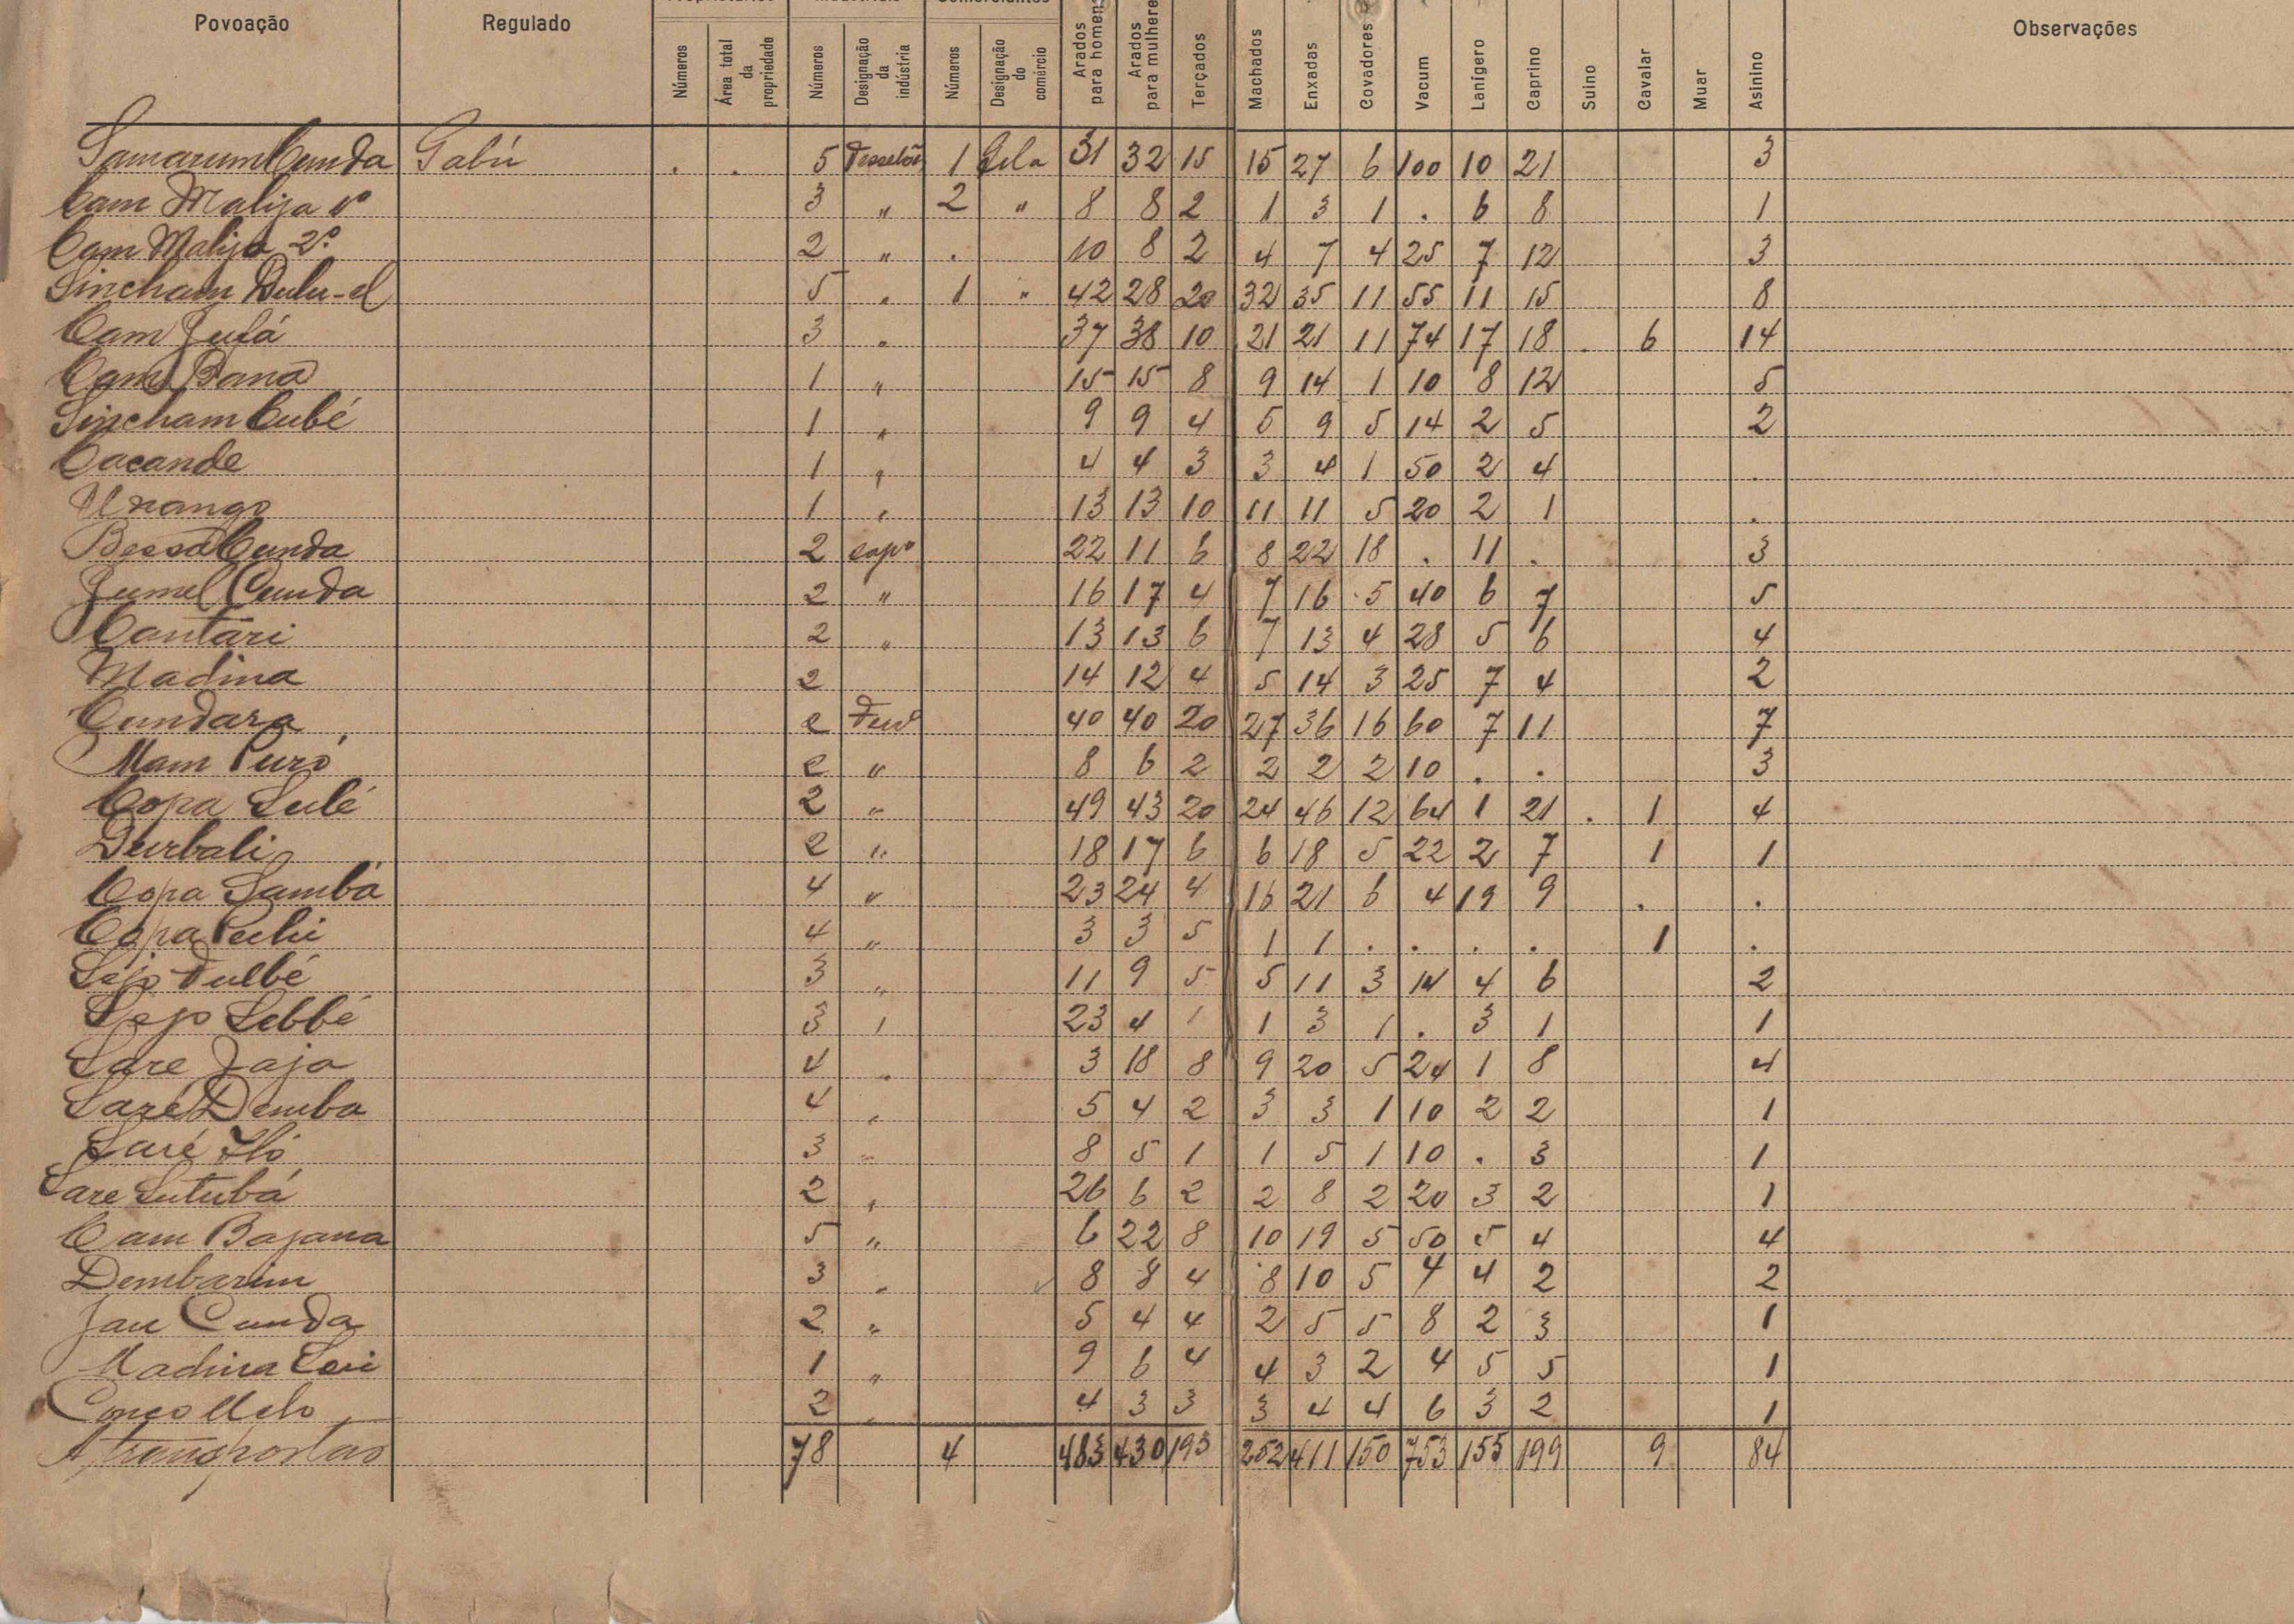 Povoação Regulado Números Área total da propriedade Números Designação da indústria Números Designação do comércio Arados para homens Arados para mulheres Terçados Machados Enxadas Covadores Vacum Lanígero Caprino Suino Cavalar Muar Asinino Observações
Samarum Cunda Gabú . . 5 1 31 32 15 15 27 6 100 10 21 3
Cam Malija 1º 3 " 2 " 8 8 2 1 3 1 . 6 8 1
Cam Malija 2º 2 " . 10 8 2 4 7 4 25 7 12 3
Sincham Dulu-el 5 " 1 " 42 28 20 32 35 11 55 11 15 8
Cam Jufá 3 " 37 38 10 21 21 11 74 17 18 . 6 14
Cam Bana 1 " 15 15 8 9 14 1 10 8 12 5
Sincham Cubé 1 " 9 9 4 5 9 5 14 2 5 2
Cacande 1 " 4 4 3 3 4 1 50 2 4 .
1 " 13 13 10 11 11 5 20 2 1 .
Bessa Cunda 2 22 11 6 8 22 18 . 11 . 3
Jumel Cunda 2 " 16 17 4 7 16 5 40 6 7 5
Cantari 2 " 13 13 6 7 13 4 28 5 6 4
Madina 2 14 12 4 5 14 3 25 7 4 2
Cundara 2 40 40 20 27 36 16 60 7 11 7
Mam Puró 2 " 8 6 2 2 2 2 10 . . 3
Copa Sulé 2 " 49 43 20 24 46 12 64 1 21 . 1 4
Durbali 2 " 18 17 6 6 18 5 22 2 7 1 1
Copa Sambá 4 " 23 24 4 16 21 6 4 19 9 . .
Copa 4 " 3 3 5 1 1 . . . . 1 .
Sejo Fulbé 3 " 11 9 5 5 11 3 14 4 6 2
Sejo Sebbé 3 " 23 4 1 1 3 1 . 3 1 1
Sare Jaja 4 " 3 18 8 9 20 5 24 1 8 4
Saré Demba 4 " 5 4 2 3 3 1 10 2 2 1
Saré 3 " 8 5 1 1 5 1 10 . 3 1
Sare Sutubá 2 " 26 6 2 2 8 2 20 3 2 1
Cam Bajana 5 " 6 22 8 10 19 5 50 5 4 4
Dembarim 3 " 8 8 4 8 10 5 4 4 2 2
Jau Cunda 2 " 5 4 4 2 5 5 8 2 3 1
Madina 1 " 9 6 4 4 3 2 4 5 5 1
2 " 4 3 3 3 4 4 6 3 2 1
A transportar 78 4 483 430 193 252 411 150 753 155 199 9 84